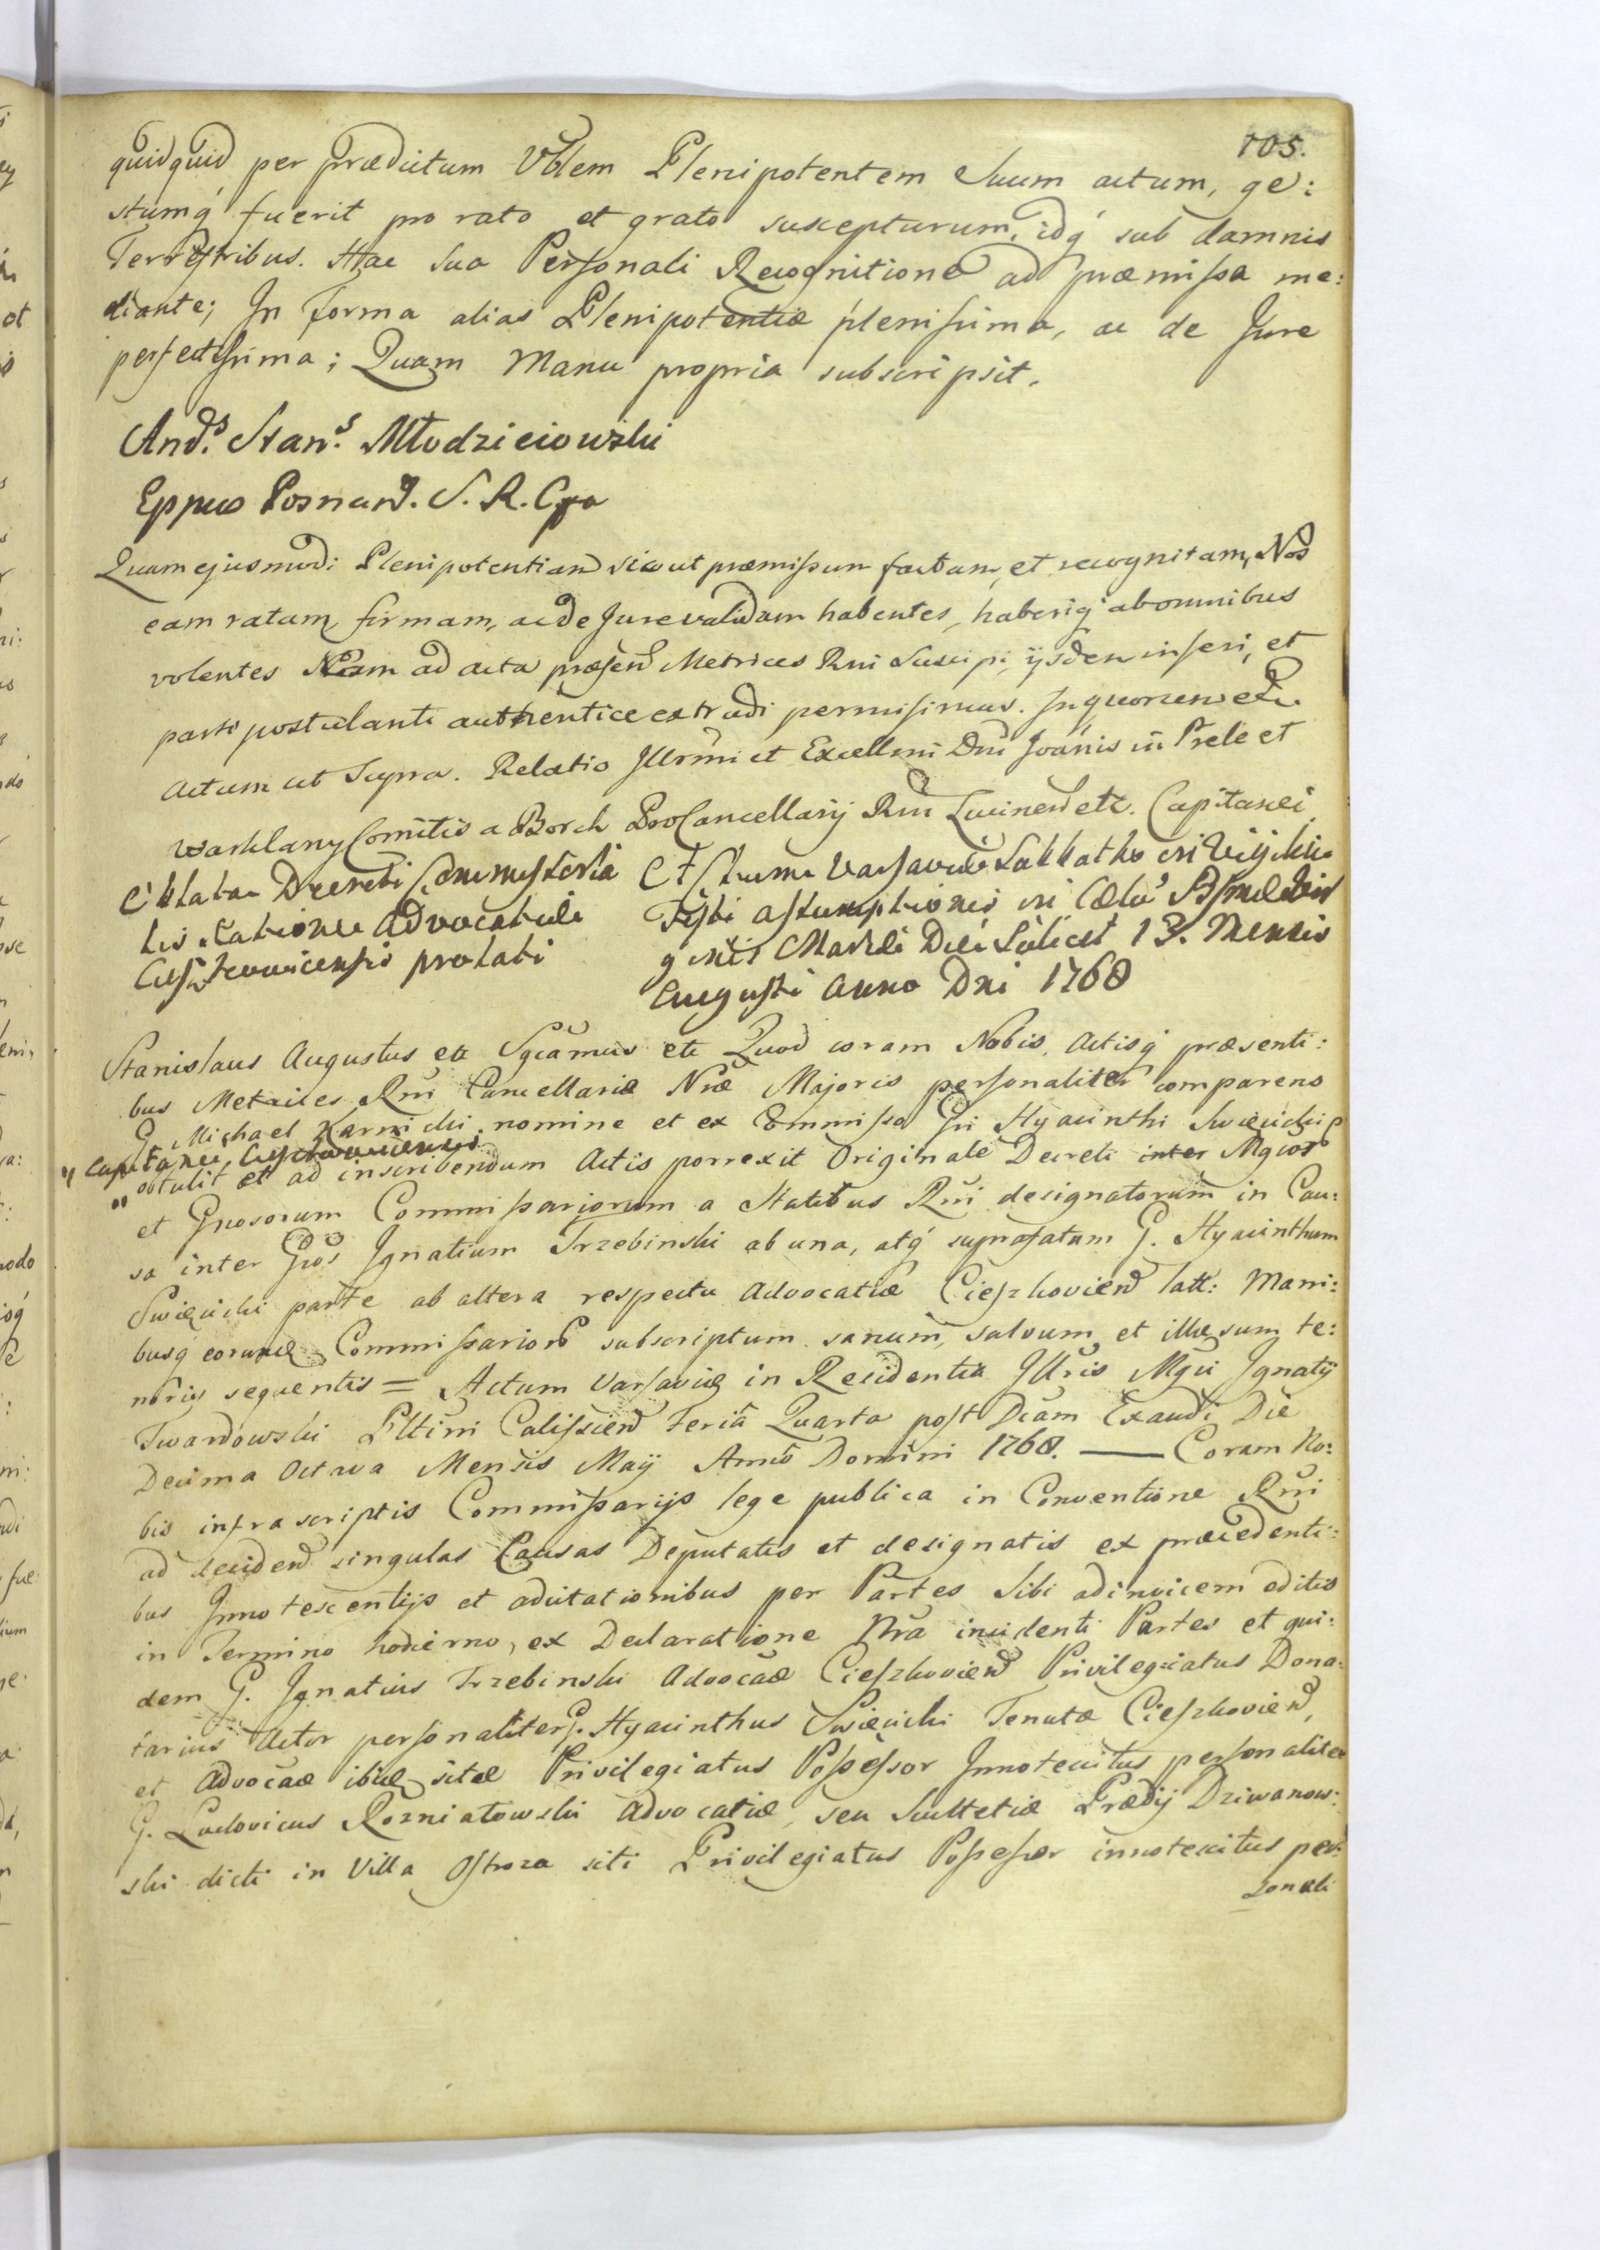 105.
quidquid per Prædictum Vblem Plenipotentem Suum actum, ge:
stumq́ fuerit pro rato et grato suscepturum, idq́ sub damnis
Terrestribus. Hac sua Personali Recognitione ad præmissa me:
diante; In forma alias Plenipotentiæ plenissima, ac de Jure
perfectissima; Quam Manu propria subscripsit.
And.s Stan.s Młodzieiowski
Eppus Posnan. S. R. C
Quam ejusmodi Plenipotentiam sicut præmissum factam, et recognitam, Nos
eam ratam, firmam, ac de Jure validam habentes, haberiq́ ab omnibus
volentes Eam ad acta præsen Metrices Rni Suscipi, ijsdem inseri, et
parti postulanti authentice extradi permisimus. In quorum etc.
Actum ut Supra. Relatio Illrmi et Excellmi Dni Joannis in Prele et
Warklany Comitis a Borch ProCancellarij Rni Lucinen etc. Capitanei
Oblata Decreti Commissoria
lis ratione Advocatiæ
Cieszkoviensis prolati
Actum Varsaviæ Sabbatho in Vigilia
Festi Assumptionis in Cælu
ginis Mariæ Die Scilicet 13. Mensis
Augusti Anno Dni 1768
Stanislaus Augustus etc Sgcamus etc Quod coram Nobis, Actisq́ præsenti:
bus Metrices Rni Cancellariæ Nræ Majoris personaliter comparens
G. Michael Karnicki nomine et ex Commisso Gni Hyacinthi Swiecicki
" Capitanei
" obtulit et ad inscribendum Actis porrexit Originale Decreti inter Mgcos
et Gnosorum Commissariorum a Statibus Rni designatorum in Cau:
sa inter Gnos Ignatium Trzebinski ab una, atq́ supra fatum G. Hyacinthum
Swiecicki parte ab altera respectu Advocatiæ Cieszkovien latt: Mani:
busq́ eorund Commissarior subscriptum sanum, salvum et illæsum te:
noris sequentis = Actum Varsaviæ in Residentia Illris Mgci Ignatij
Twardowski Pltini Calissien Feria Quarta post Dcam Exaudi Die
Decima Octava Mensis Maij Anno Domini 1768. — Coram No:
bis infrascriptis Commissarijs lege publica in Conventione Rni
ad deciden singulas Causas Deputatis et designatis ex præcedenti:
bus Innotescentijs et adcitationibus per Partes Sibi adinvicem editis
in Termino hodierno, ex Declaratione Nra incidenti Partes et qui:
dem G. Ignatius Trzebinski Advocæ Cieszkovien Privilegiatus Dona:
tarius Actor personaliter G. Hyacinthus Swiecicki Tenutæ Cieszkovien,
et Advocæ ibid sitæ Privilegiatus Possessor Innotescitus personaliter
G. Ludovicus Rozniatowski Advocatiæ, seu Scultetiæ Prædij Dziwanow:
ski dicti in Villa Ostroza siti Privilegiatus Possessor innotescitus per:
sonali